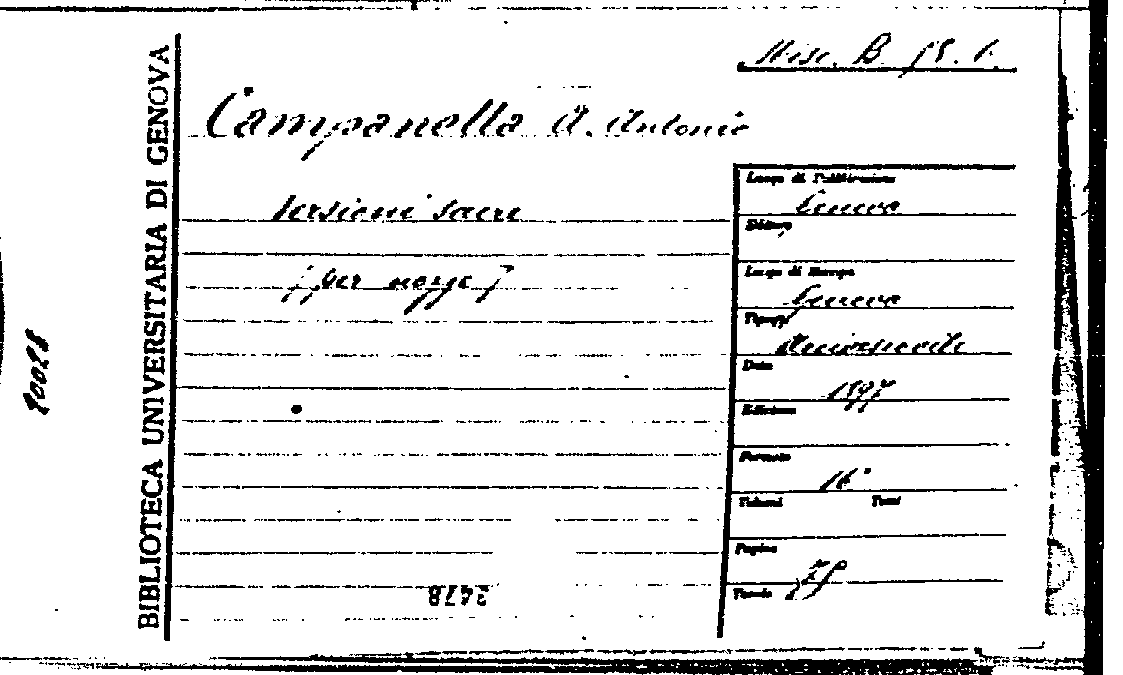 BIBLIOTECA UNIVERSITARIA DI GENOVA
Misc. B.
Campanella A. Antonio
Versioni sacre
[per nozze]
Luogo di Pubblicazione
Genova
Editore
Luogo di Stampa
Genova
Tipogr.
Arcivescovile
Data
1897
Edizione
Formato
16°
Volumi Tomi
Pagine
Tavole
2478